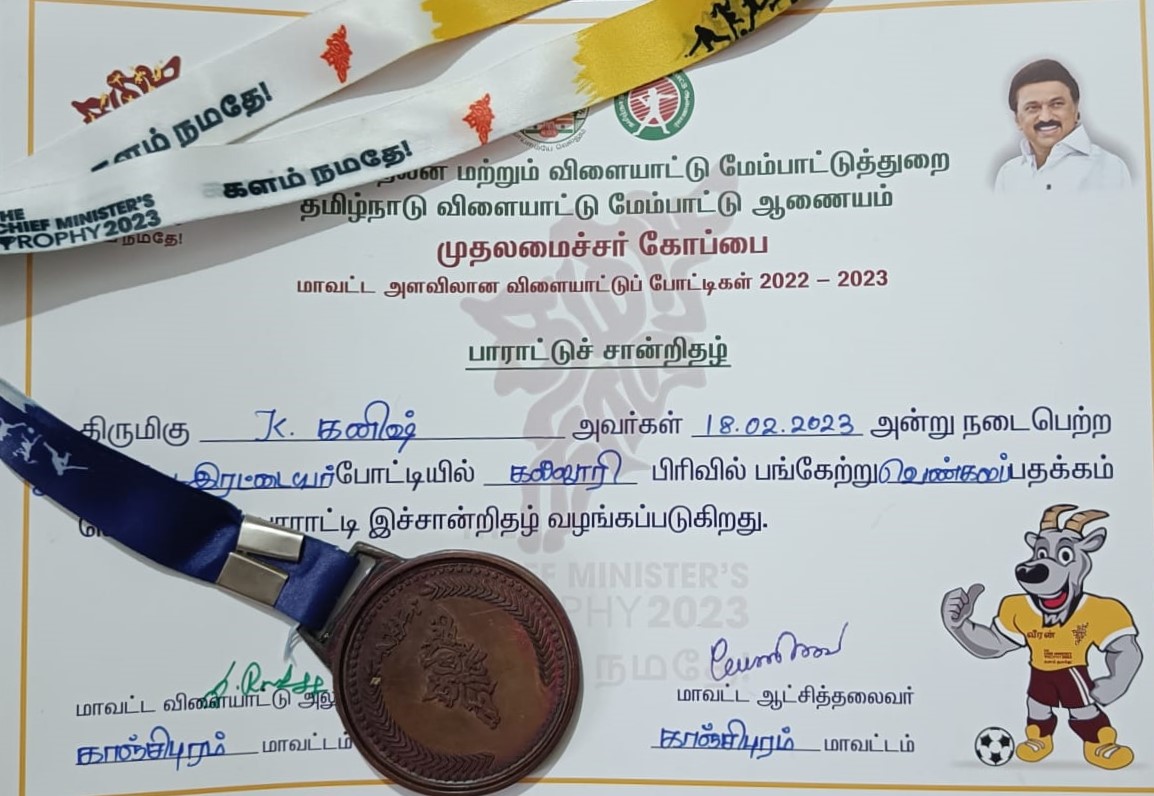 களம் நமதே!
களம் நமதே!
THE
CHIEF MINISTER'S
TROPHY 2023
நமதே!
மற்றும் விளையாட்டு மேம்பாட்டுத்துறை
தமிழ்நாடு விளையாட்டு மேம்பாட்டு ஆணையம்
முதலமைச்சர் கோப்பை
மாவட்ட அளவிலான விளையாட்டுப் போட்டிகள் 2022 – 2023
பாராட்டுச் சான்றிதழ்
திருமிகு K. கனிஷ் அவர்கள் 18.02.2023 அன்று நடைபெற்ற
இரட்டையர் போட்டியில் கல்லூரி பிரிவில் பங்கேற்று வெண்கலப் பதக்கம்
இச்சான்றிதழ் வழங்கப்படுகிறது.
MINISTER'S
2023
நமதே!
வீரன்
மாவட்ட விளையாட்டு
காஞ்சிபுரம் மாவட்டம்
மாவட்ட ஆட்சித்தலைவர்
காஞ்சிபுரம் மாவட்டம்